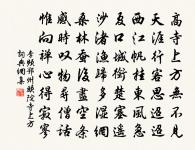 高寺上方無不見
天涯行客思迢迢
西江帆挂東風急
夏口城銜楚塞遙
沙渚漁歸多濕網
桑林蠶後盡空條
感時歎物尋僧話
惟向禪心得寂寥
李頻鄂州頭陀寺上方
詞典網集